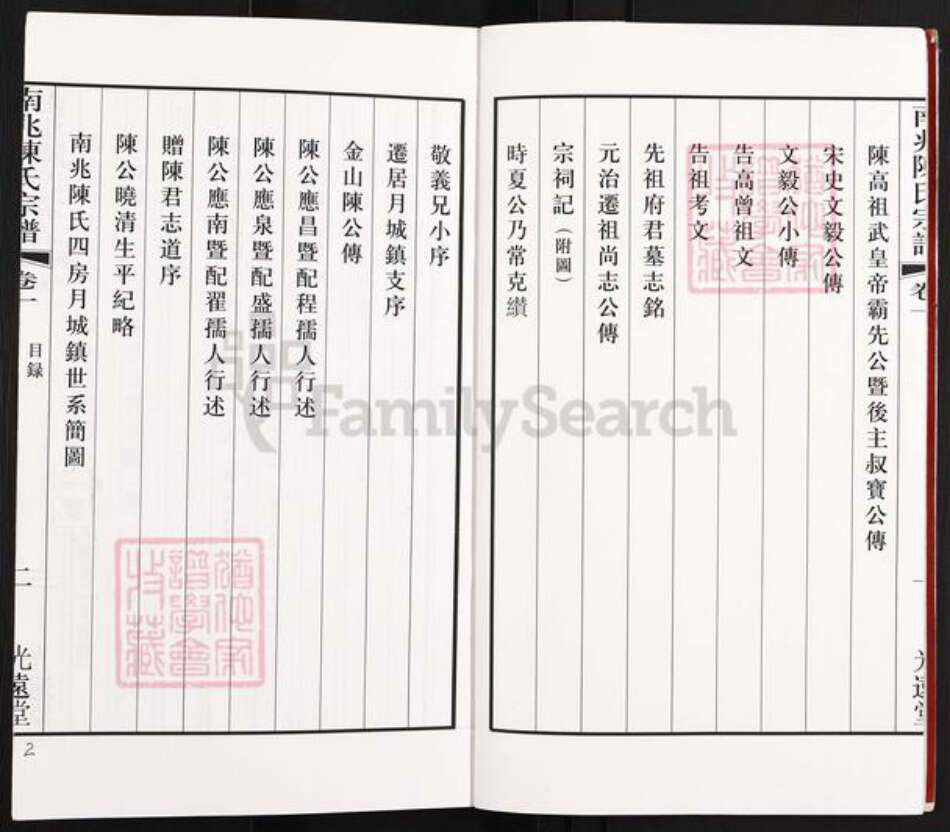 南兆陳氏宗譜
卷一
一
光遠堂
陳高祖武皇帝霸先公暨後主叔寶公傳
宋史文毅公傳
文毅公小傳
告高曾祖文
告祖考文
先祖府君墓志銘
元治遷祖尚志公傳
宗祠記（附圖）
時夏公乃常克纘
敬義兄小序
遷居月城鎮支序
金山陳公傳
陳公應昌暨配程孺人行述
陳公應泉暨配盛孺人行述
陳公應南暨配翟孺人行述
贈陳君志道序
陳公曉清生平紀略
南兆陳氏四房月城鎮世系簡圖
南兆陳氏宗譜
卷一
目録
二
光遠堂
2
FamilySearch